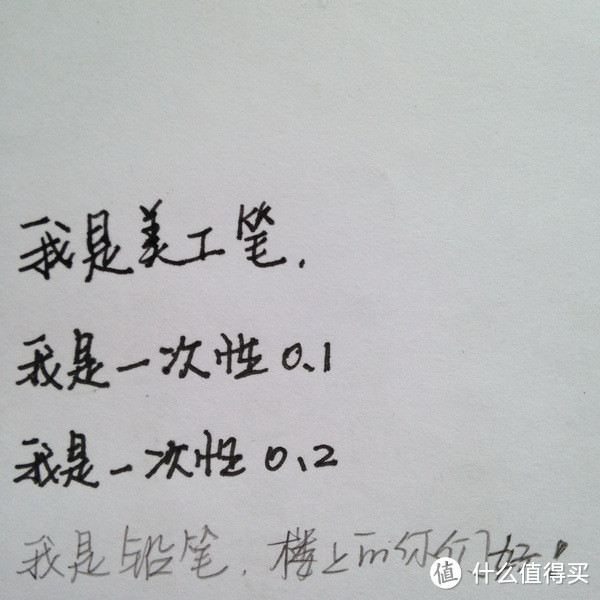 我是美工笔.
我是一次性0.1
我是一次性0.2
我是铅笔.楼上的你们好!
值 什么值得买